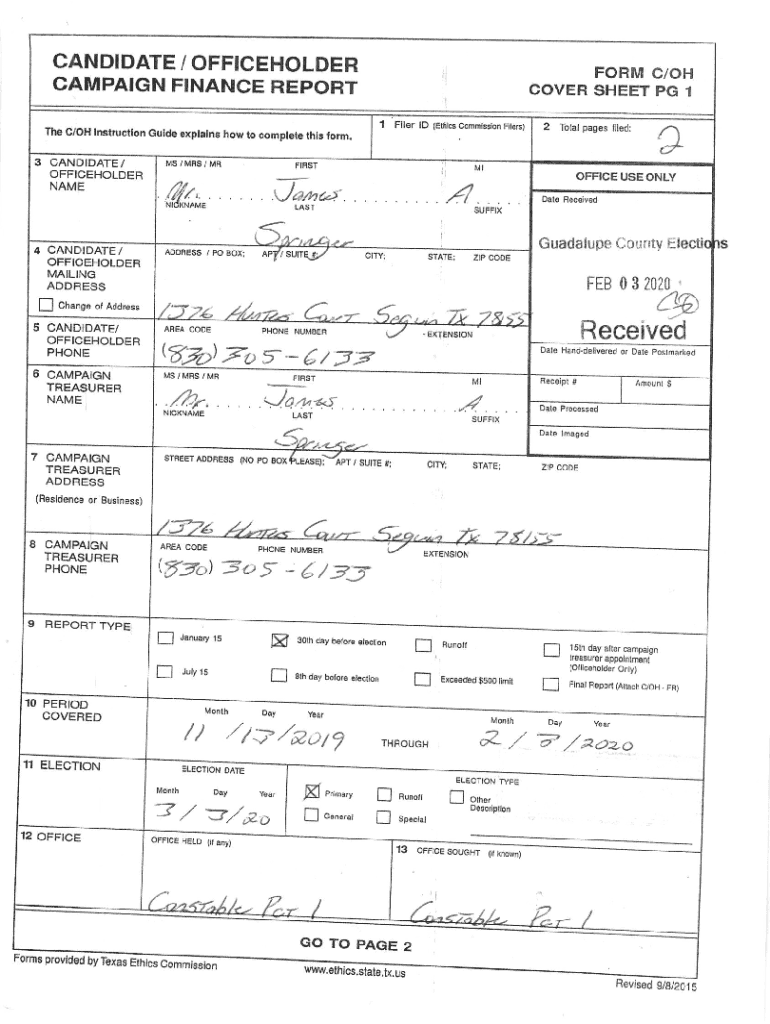 CANDIDATE / OFFICEHOLDER
CAMPAIGN FINANCE REPORT
FORM C/OH
COVER SHEET PG 1
The C/OH Instruction Guide explains how to complete this form.
1 Filer ID (Ethics Commission Filers)
2 Total pages filed:
2
3 CANDIDATE / OFFICEHOLDER NAME
MS / MRS / MR FIRST MI
Mr. James A
NICKNAME LAST SUFFIX
Springer
OFFICE USE ONLY
Date Received
Guadalupe County Elections
FEB 03 2020
Received
Date Hand-delivered or Date Postmarked
Receipt # Amount $
Date Processed
Date Imaged
4 CANDIDATE / OFFICEHOLDER MAILING ADDRESS
Change of Address
ADDRESS / PO BOX; APT / SUITE #; CITY; STATE; ZIP CODE
1376 Court Seguin Tx 7855
5 CANDIDATE/ OFFICEHOLDER PHONE
AREA CODE PHONE NUMBER EXTENSION
(830) 305-6133
6 CAMPAIGN TREASURER NAME
MS / MRS / MR FIRST MI
Mr. James A
NICKNAME LAST SUFFIX
Springer
7 CAMPAIGN TREASURER ADDRESS
(Residence or Business)
STREET ADDRESS (NO PO BOX PLEASE); APT / SUITE #; CITY; STATE; ZIP CODE
1376 Court Seguin Tx 78155
8 CAMPAIGN TREASURER PHONE
AREA CODE PHONE NUMBER EXTENSION
(830) 305-6133
9 REPORT TYPE
January 15
30th day before election
Runoff
15th day after campaign treasurer appointment (Officeholder Only)
July 15
8th day before election
Exceeded $500 limit
Final Report (Attach C/OH - FR)
10 PERIOD COVERED
Month Day Year
11 / 13 / 2019
THROUGH
Month Day Year
2 / 3 / 2020
11 ELECTION
ELECTION DATE
Month Day Year
3 / 3 / 20
ELECTION TYPE
Primary
Runoff
Other Description
General
Special
12 OFFICE
OFFICE HELD (if any)
Constable Pct 1
13 OFFICE SOUGHT (if known)
Constable Pct 1
GO TO PAGE 2
Forms provided by Texas Ethics Commission
www.ethics.state.tx.us
Revised 9/8/2015